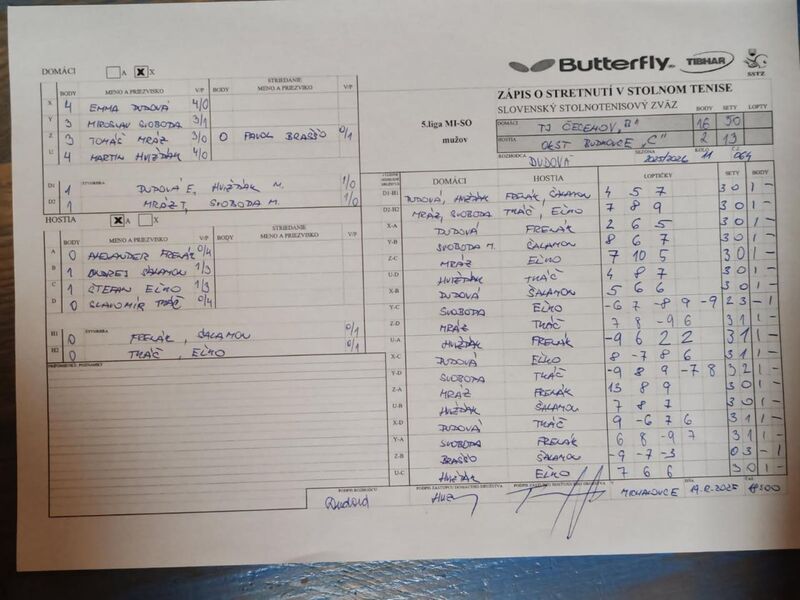 DOMÁCI A X
BODY MENO A PRIEZVISKO V/P BODY STRIEDANIE MENO A PRIEZVISKO V/P
X 4 EMMA DUDOVÁ 4/0
Y 3 MIROSLAV SVOBODA 3/1
Z 3 TOMÁŠ MRÁZ 3/0 0 PAVOL BRAŠŠO 0/1
U 4 MARTIN HVIŽĎÁK 4/0
ŠTVORHRA
D1 1 DUDOVÁ E, HVIŽĎÁK M. 1/0
D2 1 MRÁZ T, SVOBODA M. 1/0
HOSTIA A X
BODY MENO A PRIEZVISKO V/P BODY STRIEDANIE MENO A PRIEZVISKO V/P
A 0 ALEXANDER FRENÁK 0/4
B 1 ONDREJ ŠALAMON 1/3
C 1 ŠTEFAN EĽKO 1/3
D 0 SLAVOMÍR TKÁČ 0/4
ŠTVORHRA
H1 0 FRENÁK, ŠALAMON 0/1
H2 0 TKÁČ, EĽKO 0/1
PRIPOMIENKY, POZNÁMKY
Butterfly TIBHAR SSTZ
ZÁPIS O STRETNUTÍ V STOLNOM TENISE
SLOVENSKÝ STOLNOTENISOVÝ ZVÄZ BODY SETY LOPTY
5.liga MI-SO
mužov
DOMÁCI TJ ČEČEHOV "B" 16 50
HOSTIA OKST BUDKOVCE "C" 2 13
ROZHODCA DUDOVÁ SEZÓNA 2025/2026 KOLO 11 Č.Z. 064
DOMÁCI HOSTIA LOPTIČKY SETY BODY
D1-H1 DUDOVÁ, HVIŽĎÁK FRENÁK, ŠALAMON 4 5 7 3 0 1 -
D2-H2 MRÁZ, SVOBODA TKÁČ, EĽKO 7 8 9 3 0 1 -
X-A DUDOVÁ FRENÁK 2 6 5 3 0 1 -
Y-B SVOBODA M. ŠALAMON 8 6 7 3 0 1 -
Z-C MRÁZ EĽKO 7 10 5 3 0 1 -
U-D HVIŽĎÁK TKÁČ 4 8 7 3 0 1 -
X-B DUDOVÁ ŠALAMON 5 6 6 3 0 1 -
Y-C SVOBODA EĽKO -6 7 -8 9 -9 2 3 - 1
Z-D MRÁZ TKÁČ 7 8 -9 6 3 1 1 -
U-A HVIŽĎÁK FRENÁK -9 6 2 2 3 1 1 -
X-C DUDOVÁ EĽKO 8 -7 8 6 3 1 1 -
Y-D SVOBODA TKÁČ -9 8 9 -7 8 3 2 1 -
Z-A MRÁZ FRENÁK 13 8 9 3 0 1 -
U-B HVIŽĎÁK ŠALAMON 7 8 7 3 0 1 -
X-D DUDOVÁ TKÁČ 9 -6 7 6 3 1 1 -
Y-A SVOBODA FRENÁK 6 8 -9 7 3 1 1 -
Z-B BRAŠŠO ŠALAMON -9 -7 -3 0 3 - 1
U-C HVIŽĎÁK EĽKO 7 6 6 3 0 1 -
PODPIS ROZHODCU PODPIS ZÁSTUPCU DOMÁCEHO DRUŽSTVA PODPIS ZÁSTUPCU HOSŤUJÚCEHO DRUŽSTVA V DŇA ČAS
Dudová MICHALOVCE